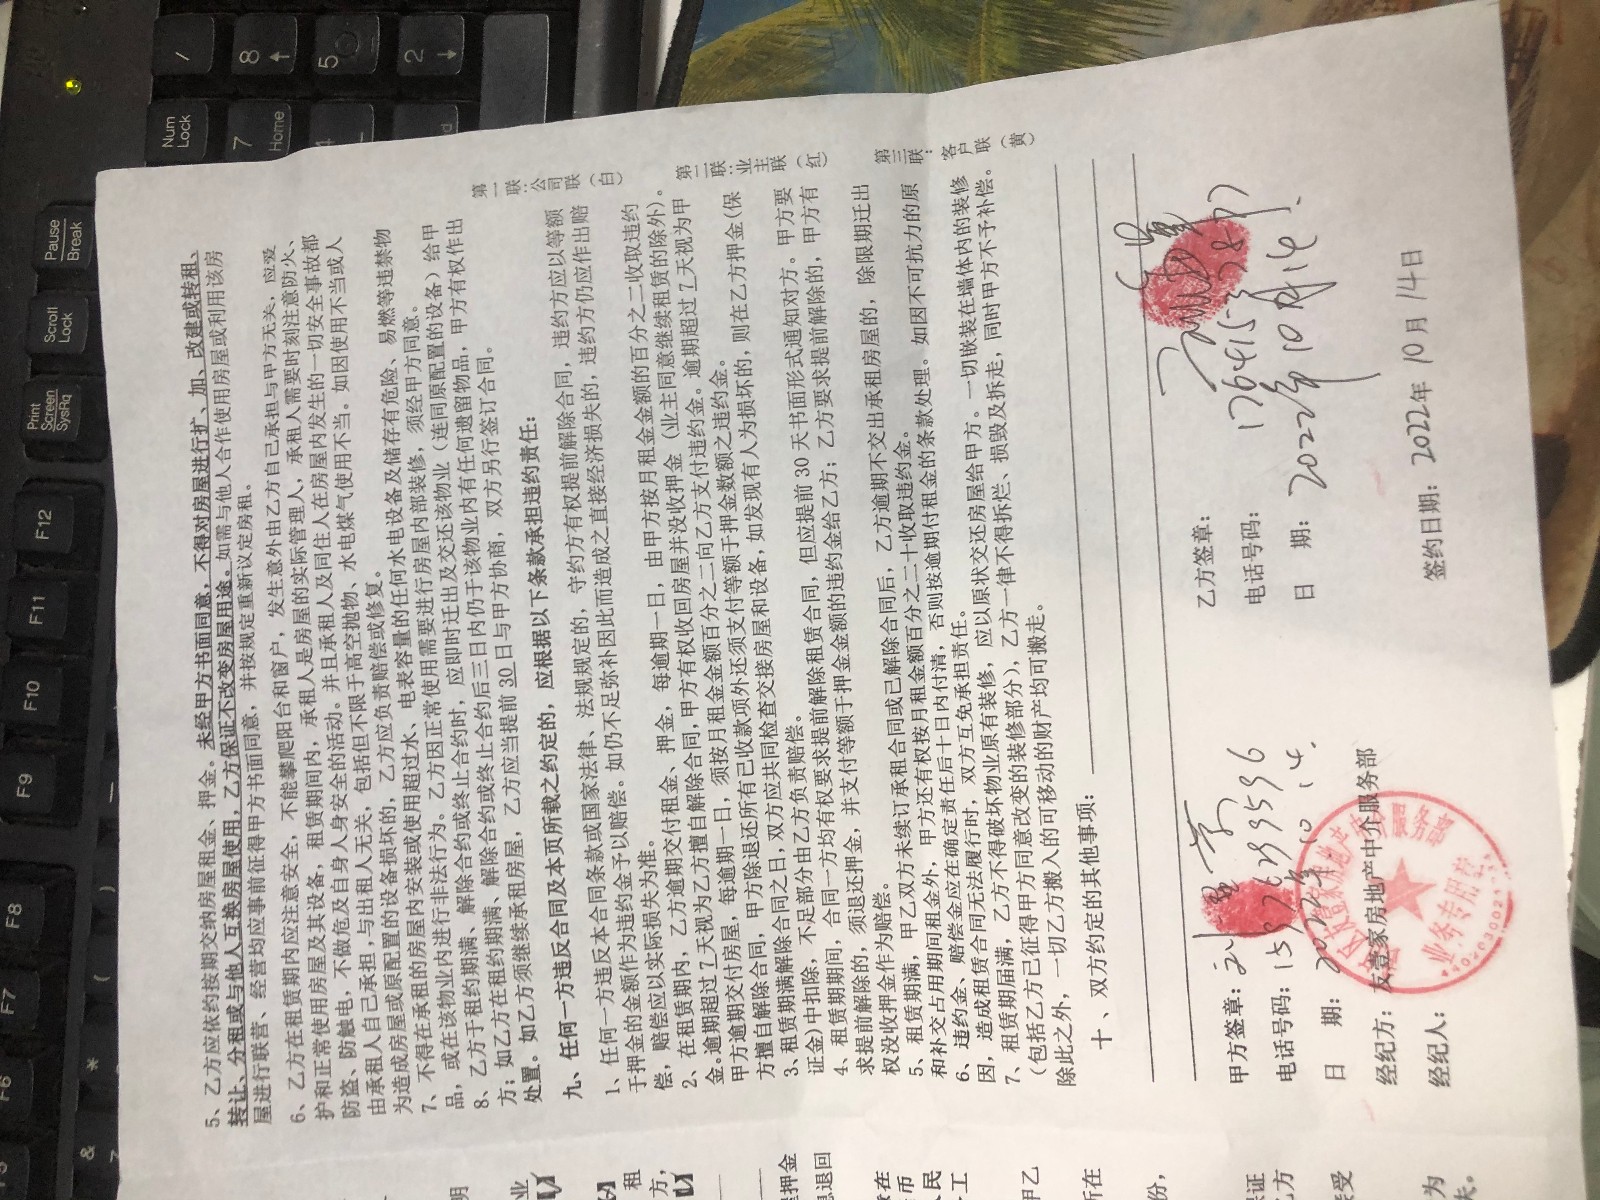 5、乙方应依约按期交纳房屋租金、押金。未经甲方书面同意，不得对房屋进行扩、加、改建或转租、
转让、分租或与他人互换房屋使用，乙方保证不改变房屋用途。如需与他人合作使用房屋或利用该房
屋进行联营、经营均应事前征得甲方书面同意，并按规定重新议定房租。
6、乙方在租赁期内应注意安全，不能攀爬阳台和窗户，发生意外由乙方自己承担与甲方无关，应爱
护和正常使用房屋及其设备，租赁期间内，承租人是房屋的实际管理人，承租人需要时刻注意防火、
防盗、防触电，不做危及自身人身安全的活动。并且承租人及同住人在房屋内发生的一切安全事故都
由承租人自己承担，与出租人无关，包括但不限于高空抛物、水电煤气使用不当。如因使用不当或人
为造成房屋或原配置的设备损坏的，乙方应负责赔偿或修复。
7、不得在承租的房屋内安装或使用超过水、电表容量的任何水电设备及储存有危险、易燃等违禁物
品，或在该物业内进行非法行为。乙方因正常使用需要进行房屋内部装修，须经甲方同意。
8、乙方于租约期满、解除合约或终止合约时，应即时迁出及交还该物业（连同原配置的设备）给甲
方；如乙方在租约期满、解除合约或终止合约后三日内仍于该物业内有任何遗留物品，甲方有权作出
处置。如乙方须继续承租房屋，乙方应当提前 30 日与甲方协商，双方另行签订合同。
九、任何一方违反合同及本页所载之约定的，应根据以下条款承担违约责任：
1、任何一方违反本合同条款或国家法律、法规规定的，守约方有权提前解除合同，违约方应以等额
于押金的金额作为违约金予以赔偿。如仍不足弥补因此而造成之直接经济损失的，违约方仍应作出赔
偿，赔偿应以实际损失为准。
2、在租赁期内，乙方逾期交付租金、押金，每逾期一日，由甲方按月租金金额的百分之二收取违约
金。逾期超过 7 天视为乙方擅自解除合同，甲方有权收回房屋并没收押金（业主同意继续租赁的除外）。
甲方逾期交付房屋，每逾期一日，须按月租金金额百分之二向乙方支付违约金。逾期超过 7 天视为甲
方擅自解除合同，甲方除退还所有已收款项外还须支付等额于押金数额之违约金。
3、租赁期满解除合同之日，双方应共同检查交接房屋和设备，如发现有人为损坏的，则在乙方押金（保
证金）中扣除，不足部分由乙方负责赔偿。
4、租赁期期间，合同一方均有权要求提前解除租赁合同，但应提前 30 天书面形式通知对方。甲方要
求提前解除的，须退还押金，并支付等额于押金金额的违约金给乙方；乙方要求提前解除的，甲方有
权没收押金作为赔偿。
5、租赁期满，甲乙双方未续订承租合同或已解除合同后，乙方逾期不交出承租房屋的，除限期迁出
和补交占用期间租金外，甲方还有权按月租金额百分之二十收取违约金。
6、违约金、赔偿金应在确定责任后十日内付清，否则按逾期付租金的条款处理。如因不可抗力的原
因，造成租赁合同无法履行时，双方互免承担责任。
7、租赁期届满，乙方不得破坏物业原有装修，应以原状交还房屋给甲方。一切嵌装在墙体内的装修
（包括乙方已征得甲方同意改变的装修部分），乙方一律不得拆烂、损毁及拆走，同时甲方不予补偿。
除此之外，一切乙方搬入的可移动的财产均可搬走。
十、双方约定的其他事项：
第一联：公司联（白）
第二联：业主联（红）
第三联：客户联（黄）
甲方签章：
乙方签章：
电话号码：
电话号码：
日 期：
日 期：2022年10月14
经纪方： 友薏家房地产中介服务部
签约日期：2022年10月14日
经纪人：
业务专用章
Num Lock
7 Home
8
/
5
2
Pause Break
Scroll Lock
Print Screen SysRq
F12
F11
F10
F9
F8
F7
F6